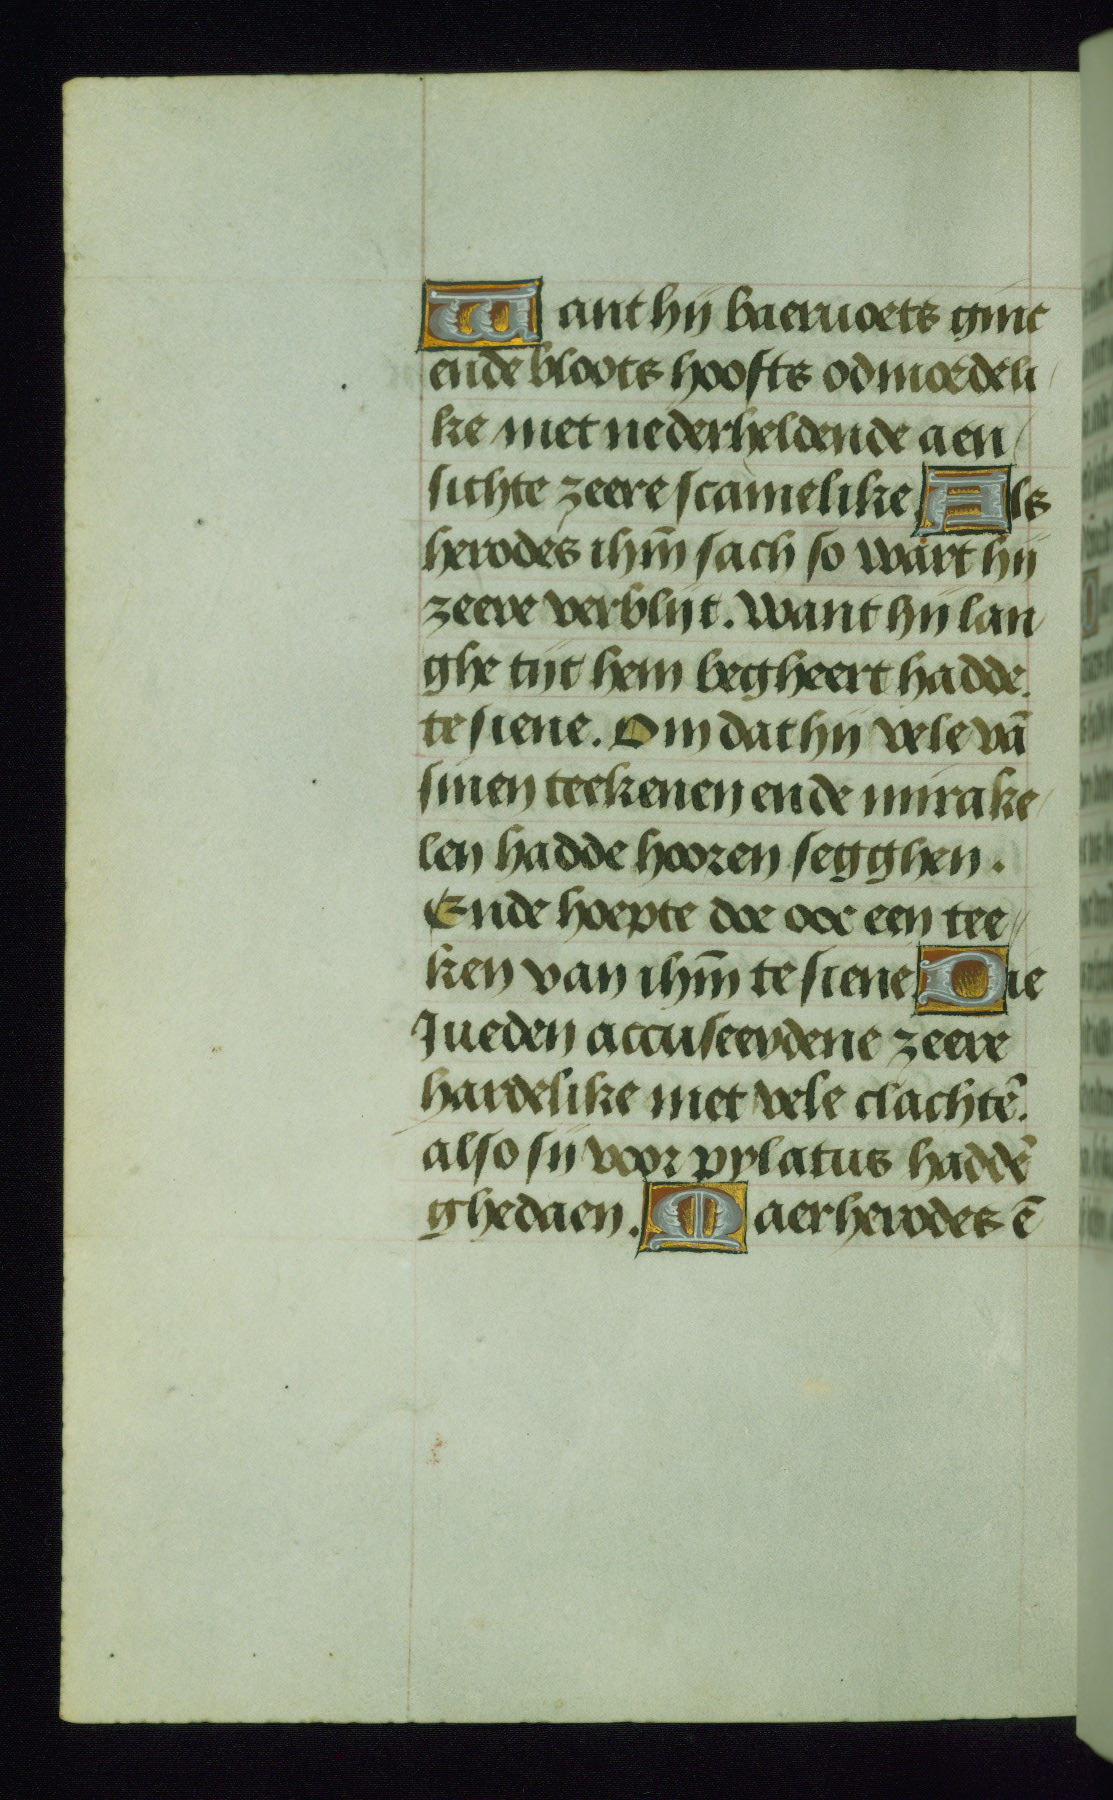 Want hij baeruoets ginc
ende bloots hoofts odmoedeli
ke met nederheldende aen
sichte zeere scamelike Als
herodes ihm̄ sach so wart hij
zeere verblijt. Want hij lan
ghe tijt hem begheert hadde.
te siene. Om dat hij vele vā
sinen teekenen ende mirake
len hadde hooren segghen.
Ende hoepte doe ooc een tee
ken van ihm̄ te siene. Die
Jueden accuseerdene zeere
hardelike met vele clachtē.
also sij voor pylatus haddē
ghedaen. Maer herodes ē